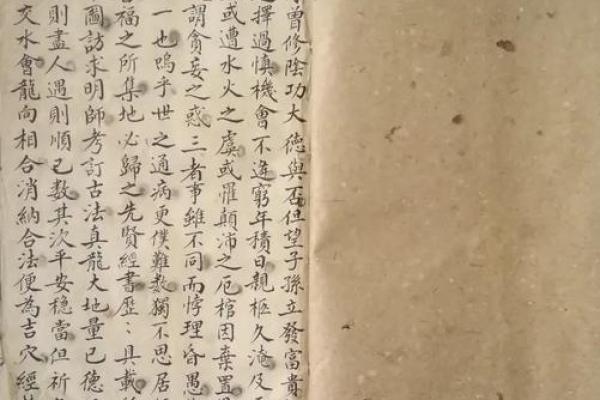 曾修陰功大德與否但望子孫立發富貴
選擇過慎機會不逢窮年積日親柩久淹及
或遭水火之虞或罹顛沛之厄棺因棄置
謂貪妄之惑三者事雖不同而悖理昏愚
一也嗚乎世之通病更僕難數獨不思居
福之所集地必歸之先賢經書歷：具載
圖訪求明師考訂古法真龍大地量已德
則盡人遇則順已數其次平安穩當但祈
交水會龍向相合消納合法便為吉穴經